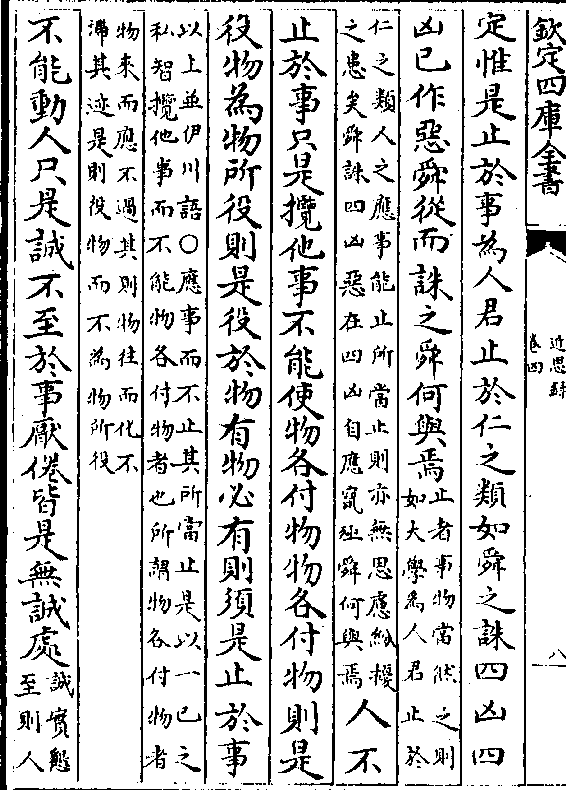 欽定四庫全書
近思錄
卷四
八
定惟是止於事為人君止於仁之類如舜之誅四凶四
凶已作惡舜從而誅之舜何與焉
止者事物當然之則
如大學為人君止於
仁之類人之應事能止所當止則亦無思慮紛擾
之患矣舜誅四凶惡在四凶自應竄殛舜何與焉
人不
止於事只是攬他事不能使物各付物物各付物則是
役物為物所役則是役於物有物必有則須是止於事
以上並伊川語〇應事而不止其所當止是以一己之
私智攬他事而不能物各付物者也所謂物各付物者
物來而應不過其則物往而化不
滯其迹是則役物而不為物所役
不能動人只是誠不至於事厭倦皆是無誠處
誠實懇
至則人